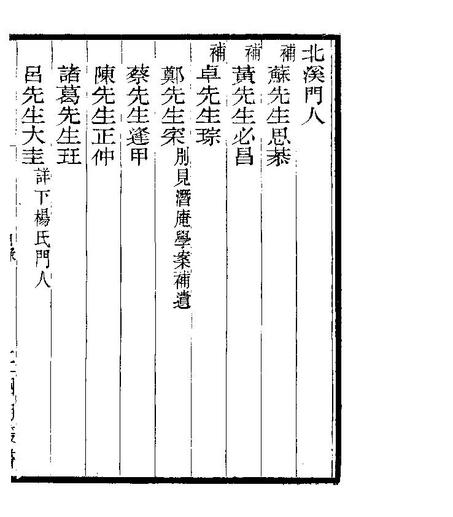 北溪門人
補 蘇先生思恭
補 黃先生必昌
補 卓先生琮
鄭先生宷 別見潛庵學案補遺
蔡先生逢甲
陳先生正仲
諸葛先生玨
呂先生大圭 詳下楊氏門人